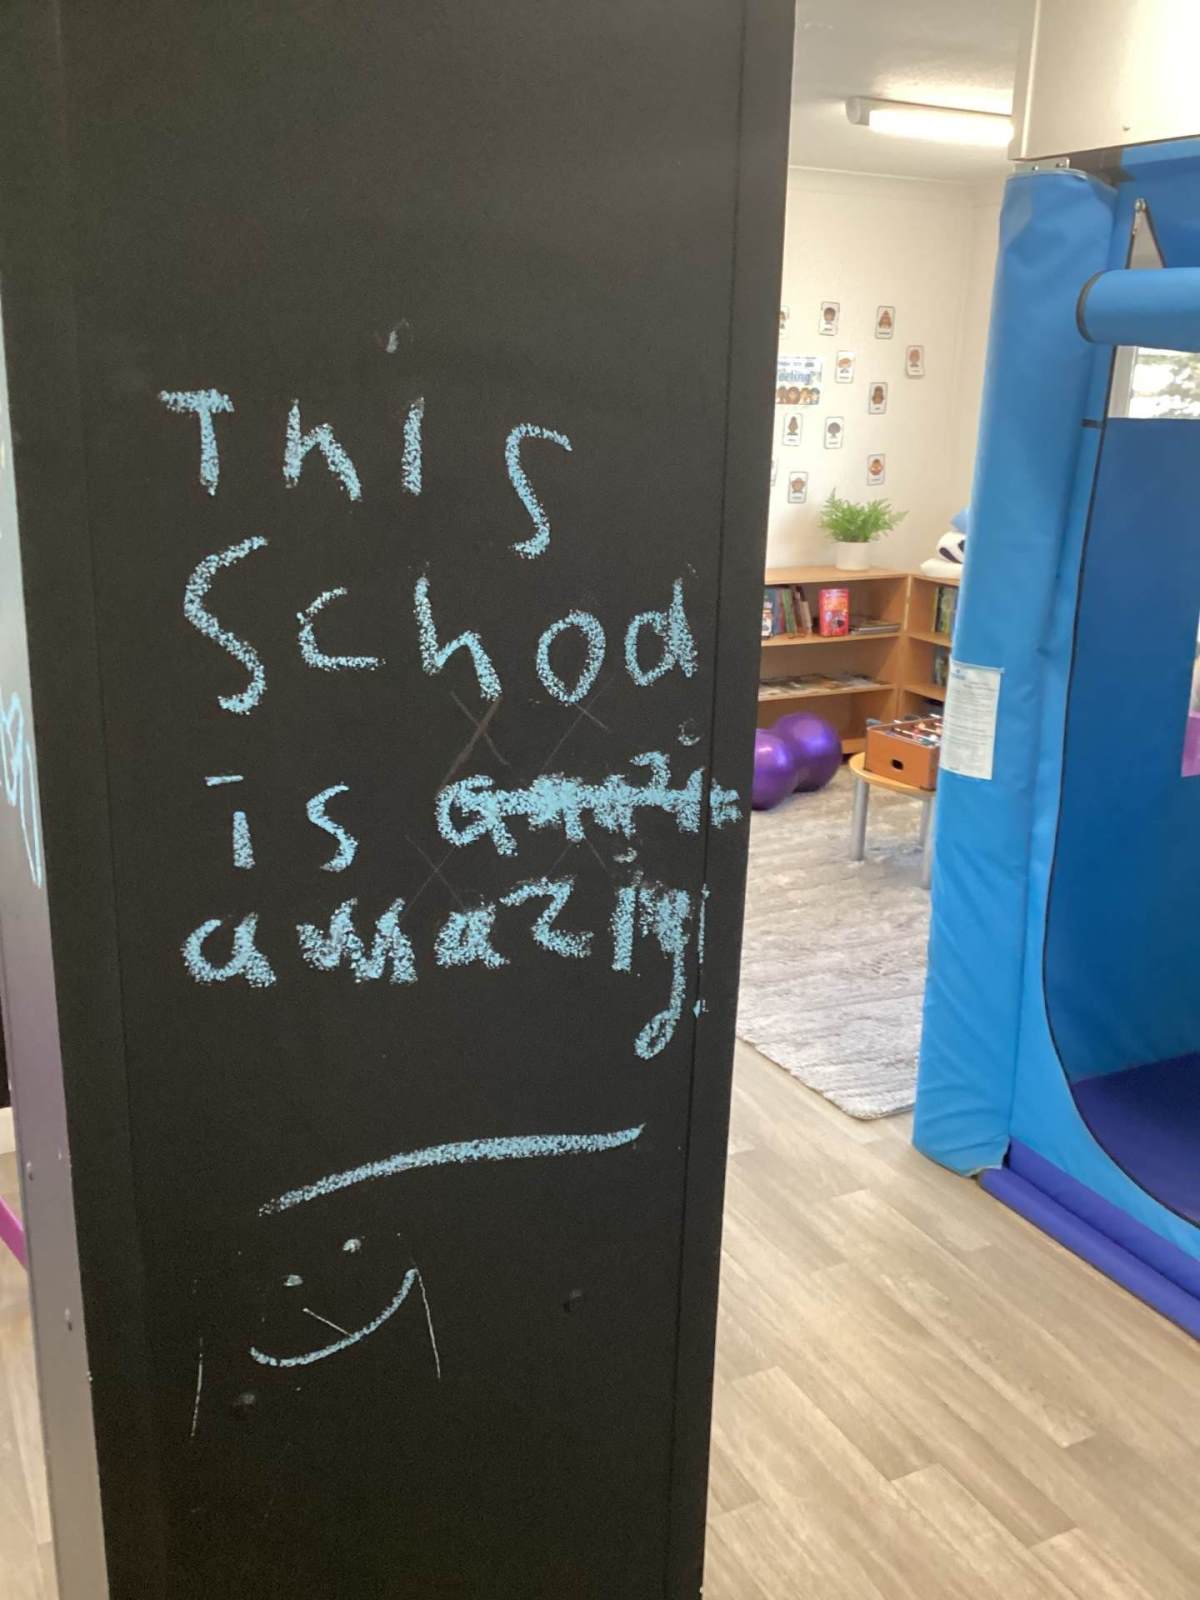 This
School
is
amazing!